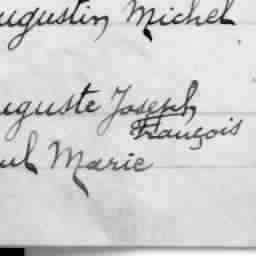 ugustin Michel
uguste Joseph
François
ul Marie